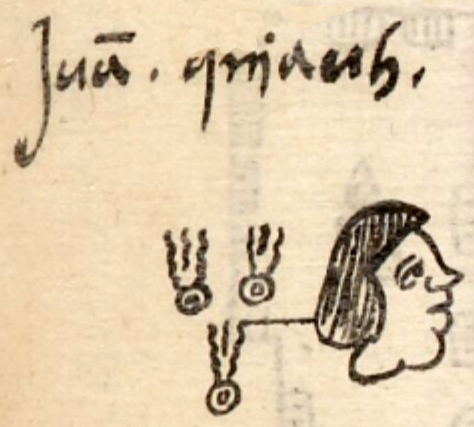 Juā. quiauh.